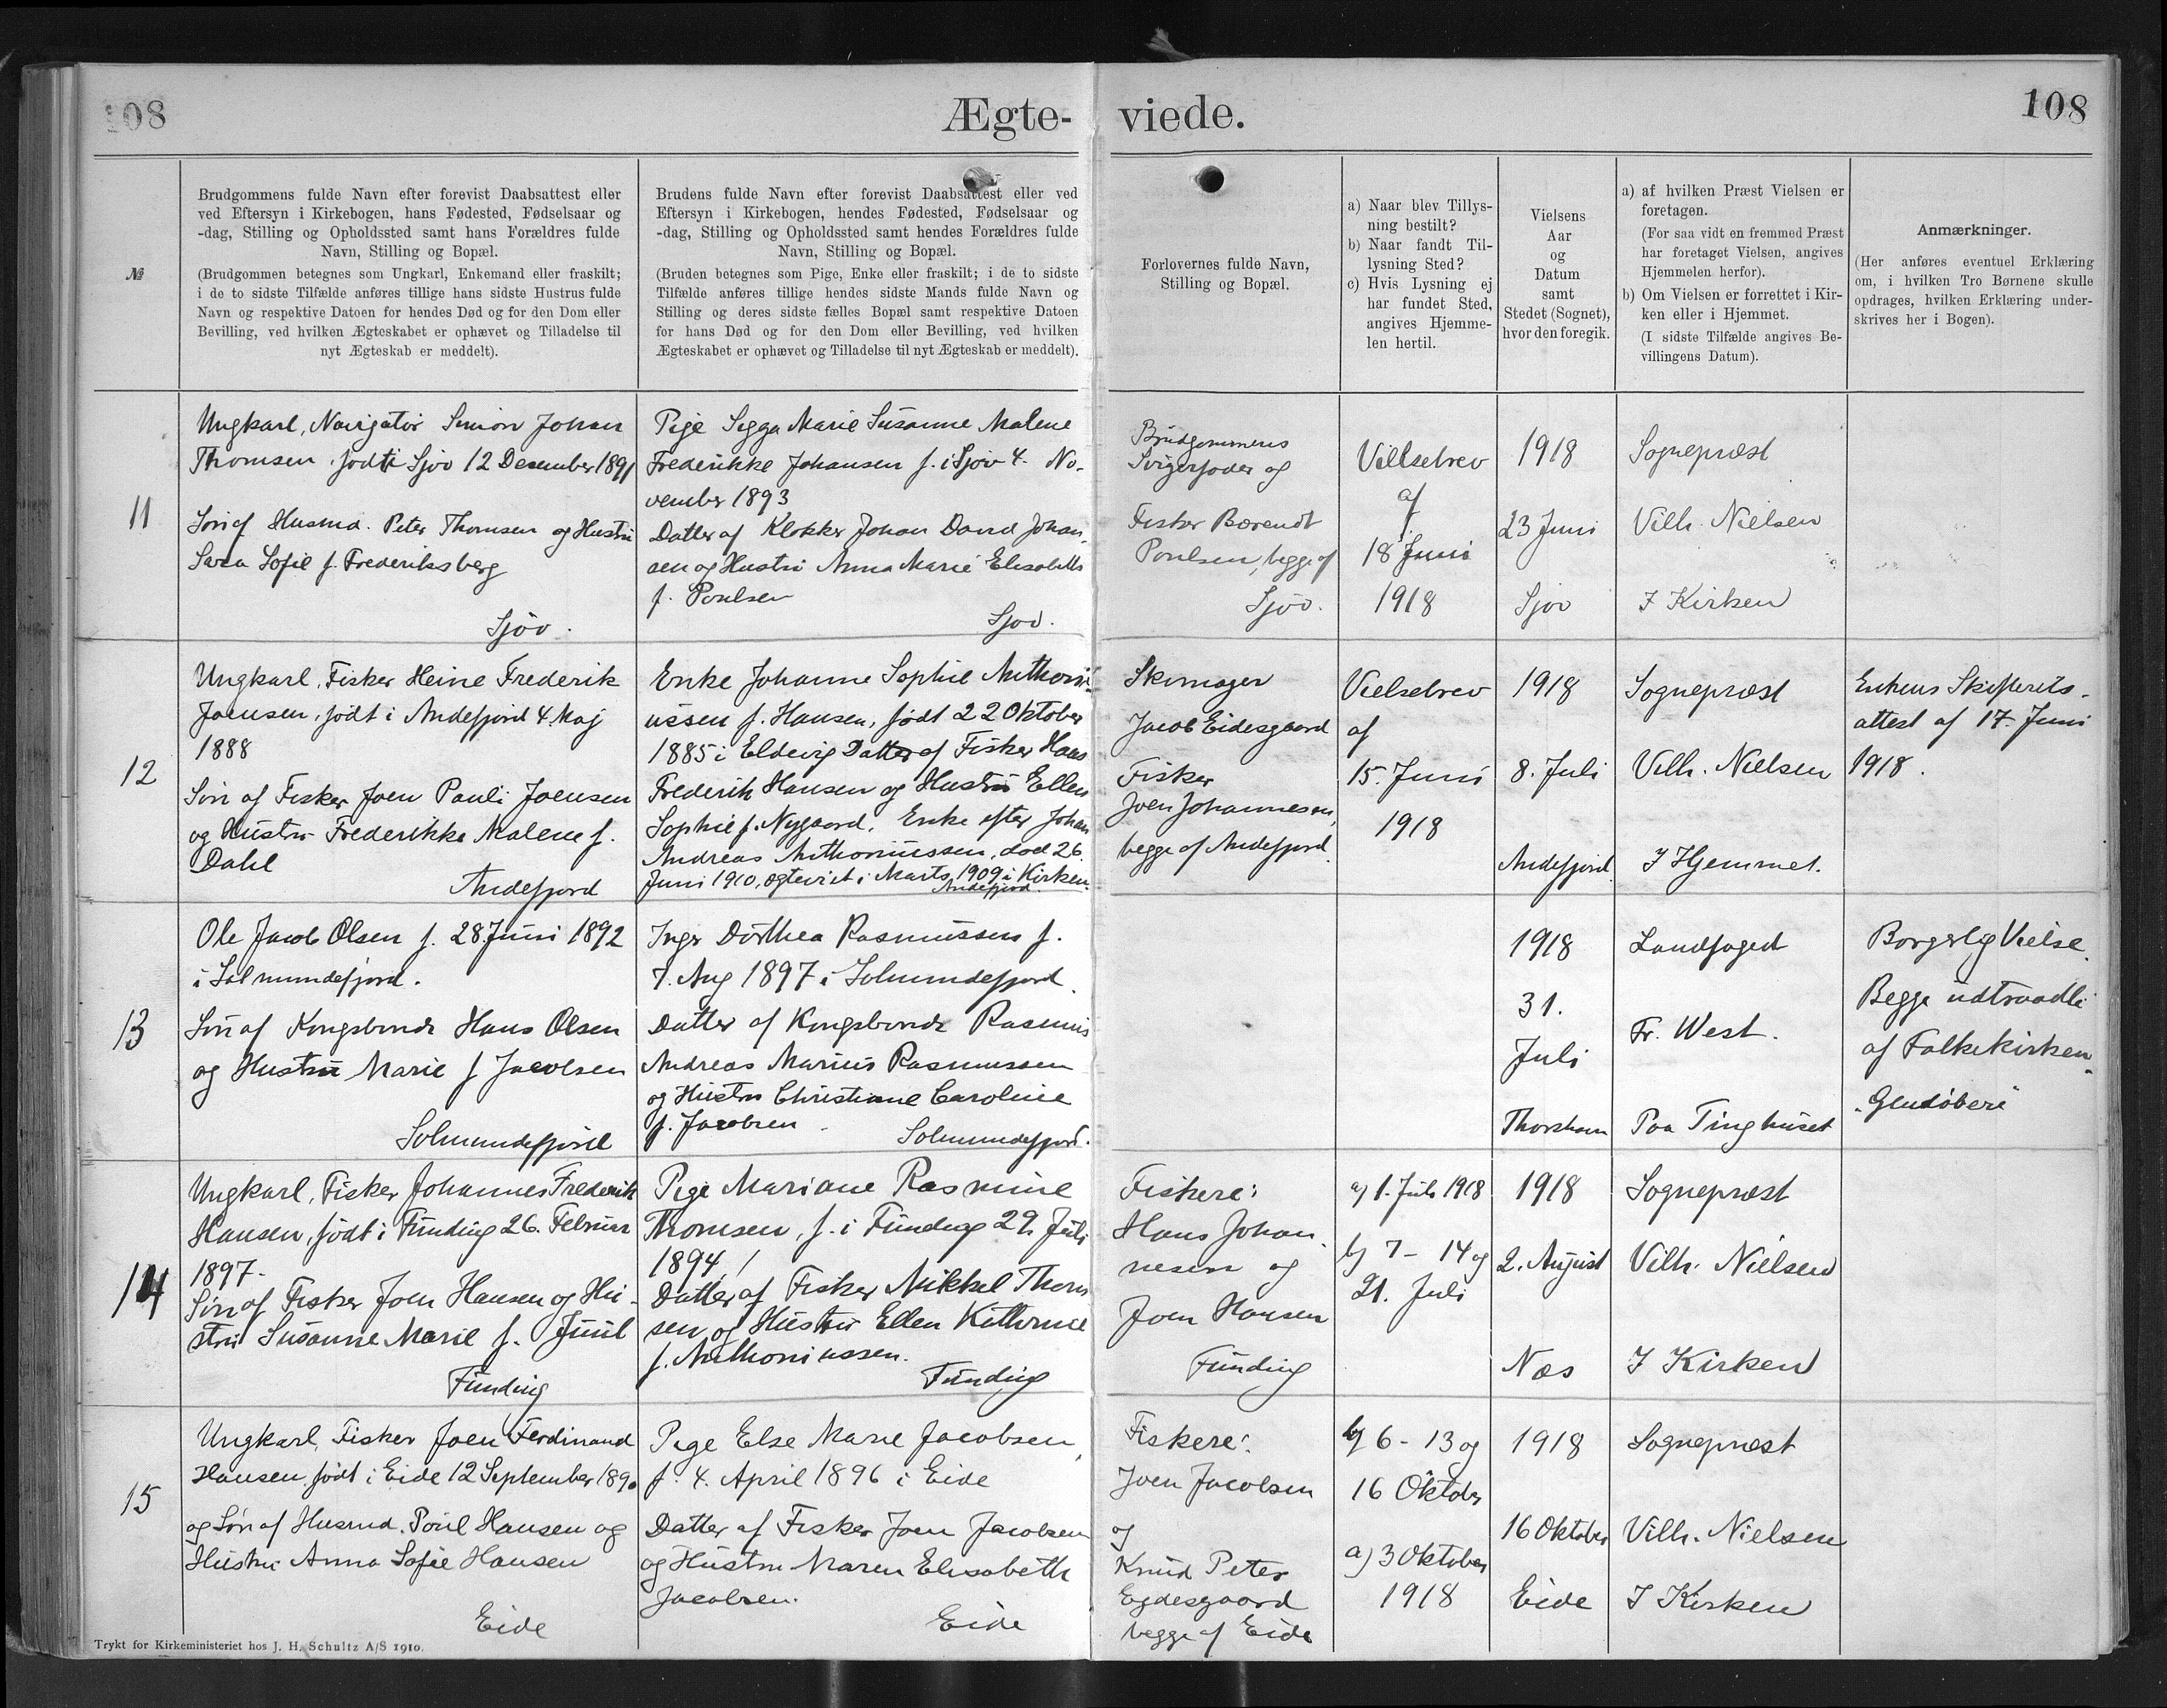 108
Ægte- viede.
108
№
Brudgommens fulde Navn efter forevist Daabsattest eller
ved Eftersyn i Kirkebogen, hans Fødested, Fødselsaar og
-dag, Stilling og Opholdssted samt hans Forældres fulde
Navn, Stilling og Bopæl.
(Brudgommen betegnes som Ungkarl, Enkemand eller fraskilt;
i de to sidste Tilfælde anføres tillige hans sidste Hustrus fulde
Navn og respektive Datoen for hendes Død og for den Dom eller
Bevilling, ved hvilken Ægteskabet er ophævet og Tilladelse til
nyt Ægteskab er meddelt).
Brudens fulde Navn efter forevist Daabsattest eller ved
Eftersyn i Kirkebogen, hendes Fødested, Fødselsaar og
-dag, Stilling og Opholdssted samt hendes Forældres fulde
Navn, Stilling og Bopæl.
(Bruden betegnes som Pige, Enke eller fraskilt; i de to sidste
Tilfælde anføres tillige hendes sidste Mands fulde Navn og
Stilling og deres sidste fælles Bopæl samt respektive Datoen
for hans Død og for den Dom eller Bevilling, ved hvilken
Ægteskabet er ophævet og Tilladelse til nyt Ægteskab er meddelt).
Forlovernes fulde Navn,
Stilling og Bopæl.
a) Naar blev Tillys-
ning bestilt?
b) Naar fandt Til-
lysning Sted?
c) Hvis Lysning ej
har fundet Sted,
angives Hjemme-
len hertil.
Vielsens
Aar
og
Datum
samt
Stedet (Sognet),
hvor den foregik.
a) af hvilken Præst Vielsen er
foretagen.
(For saa vidt en fremmed Præst
har foretaget Vielsen, angives
Hjemmelen herfor).
b) Om Vielsen er forrettet i Kir-
ken eller i Hjemmet.
(I sidste Tilfælde angives Be-
villingens Datum).
Anmærkninger.
(Her anføres eventuel Erklæring
om, i hvilken Tro Børnene skulle
opdrages, hvilken Erklæring under-
skrives her i Bogen).
11
Ungkarl, Navigatör Simon Johan
Thomsen, födt i Sjov 12 December 1891
Søn af Husmd. Peter Thomsen og Hustru
Sara Sofie f. Frederiksberg
Sjöv.
Pige Sigga Marie Susanne Malene
Frederikke Johansen f. i Sjöv 4. No-
vember 1893
Datter af Klokker Johan David Johan-
sen og Hustru Anna Marie Elisabeth
f. Poulsen
Sjov.
Brudgommens
Svigerfader og
Fisker Bærendt
Poulsen, begge af
Sjöv.
Vielsebrev
af
18 Juni
1918
1918
23 Juni
Sjov
Sognepræst
Vilh. Nielsen
I Kirken
12
Ungkarl, Fisker Heine Frederik
Joensen, födt i Andefjord 4. Maj
1888
Søn af Fisker Joen Pauli Joensen
og Hustru Frederikke Malene f.
Dahl
Andefjord
Enke Johanne Sophie Anthoni-
ussen f. Hansen, födt 22 Oktober
1885 i Eldevig Datter af Fisker Hans
Frederik Hansen og Hustru Ellen
Sophie f. Nygaard. Enke efter Johan
Andreas Anthoniussen, død 26.
Juni 1910, ægteviet i Marts 1909 i Kirken.
Andefjord
Skomager
Jacob Eidesgaard
Fisker
Joen Johannesen,
begge af Andefjord.
Vielsebrev
af
15. Juni
1918
1918
8. Juli
Andefjord.
Sognepræst
Vilh. Nielsen
I Hjemmet.
Enkens Skifterets-
attest af 17. Juni
1918.
13
Ole Jacob Olsen f. 28 Juni 1892
i Solmundefjord.
Søn af Kongsbonde Hans Olsen
og Hustru Marie f Jacobsen
Solmundefjord
Inger Dorthea Rasmussen f.
7. Aug 1897 i Solmundefjord.
Datter af Kongsbonde Rasmus
Andreas Marius Rasmussen
og Hustru Christiane Caroline
f. Jacobsen.
Solmundefjord.
1918
31.
Juli
Thorshavn
Landfoged
Fr. West.
Paa Tinghuset
Borgerlig Vielse.
Begge udtraadte
af Folkekirken.
"Gendöbere"
14
Ungkarl, Fisker Johannes Frederik
Hansen, födt i Funding 26. Februar
1897.
Søn af Fisker Joen Hansen og Hu-
stru Susanne Marie f. Juul
Funding
Pige Mariane Rasmine
Thomsen, f. i Funding 29. Juli
1894
Datter af Fisker Mikkel Thom
sen og Hustru Ellen Kathrine
f. Anthoniussen.
Funding
Fiskere:
Hans Johan-
nesen og
Joen Hansen
Funding
a) 1. Juli 1918
b) 7 - 14 og
21. Juli
1918
2. August
Næs
Sognepræst
Vilh. Nielsen
I Kirken
15
Ungkarl, Fisker Joen Ferdinand
Hansen, födt i Eide 12 September 1890
og Søn af Husmd. Poul Hansen og
Hustru Anna Sofie Hansen
Eide
Pige Else Marie Jacobsen,
f. 4. April 1896 i Eide
Datter af Fisker Joen Jacobsen
og Hustru Maren Elisabeth
Jacobsen.
Eide
Fiskere:
Joen Jacobsen
og
Knud Peter
Egdesgaard
begge af Eide
b) 6 - 13 og
16 Oktober
a) 3 Oktober
1918
1918
16 Oktober
Eide
Sognepræst
Vilh. Nielsen
I Kirken
Trykt for Kirkeministeriet hos J. H. Schultz A/S 1910.